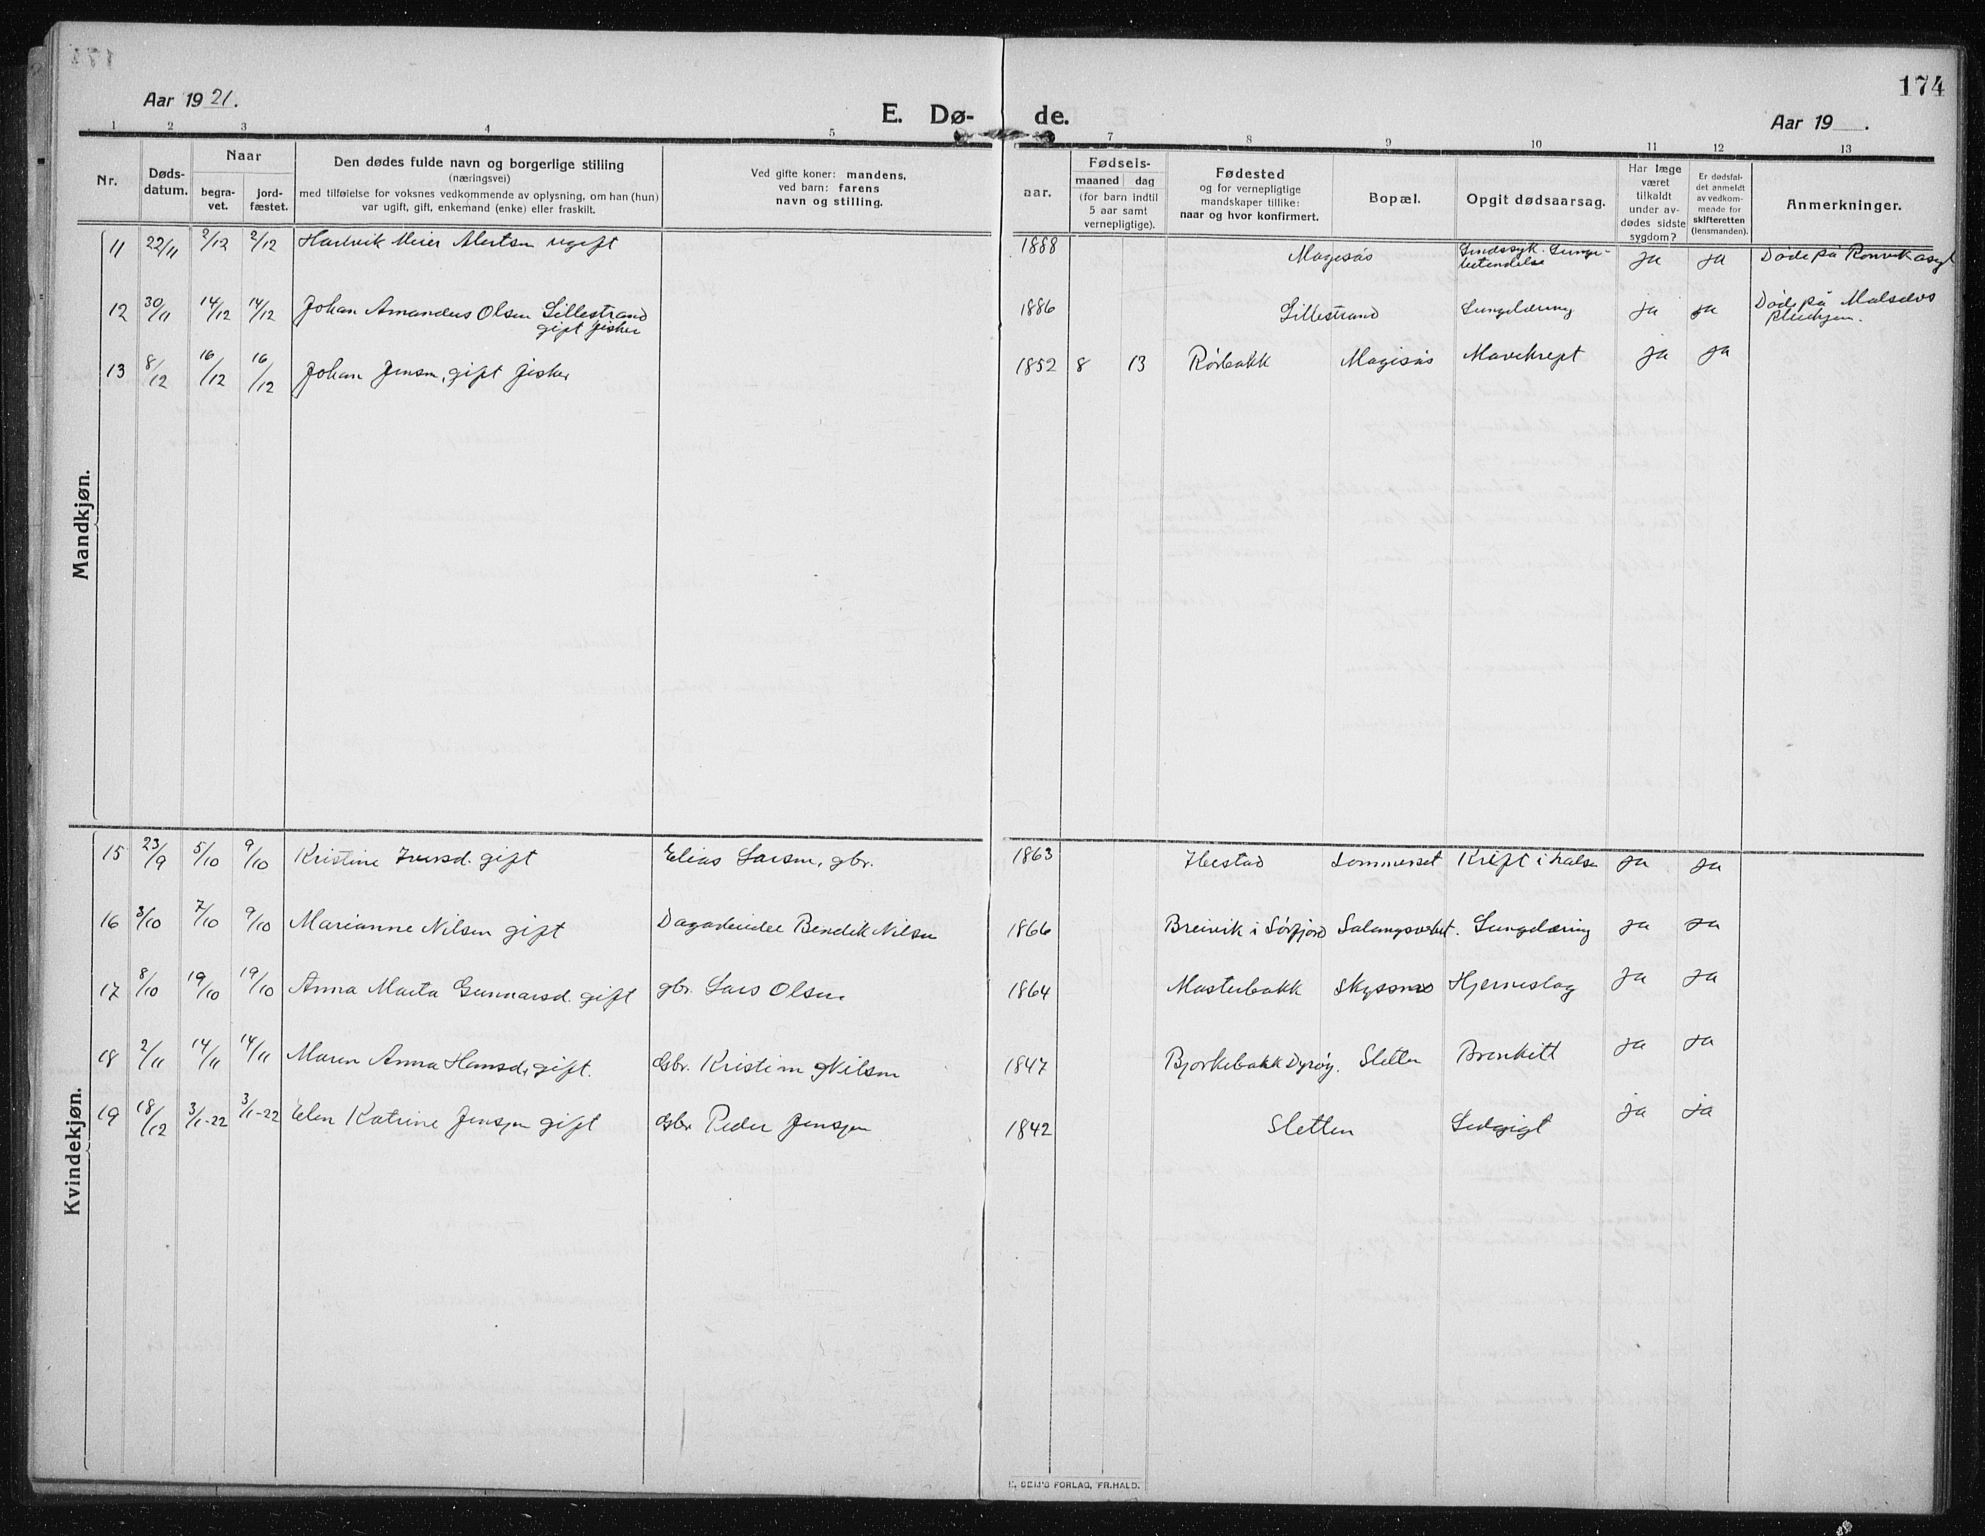 174
Aar 1921.
E. Dø-
de.
Aar 19 .
1 2 3 4 5 7 8 9 10 11 12 13
Nr.
Døds-
datum.
Naar
begra-
vet.
jord-
fæstet.
Den dødes fulde navn og borgerlige stilling
(næringsvei)
med tilføielse for voksnes vedkommende av oplysning, om han (hun)
var ugift, gift, enkemand (enke) eller fraskilt.
Ved gifte koner: mandens,
ved barn: farens
navn og stilling.
aar.
Fødsels-
maaned dag
(for barn indtil
5 aar samt
vernepligtige).
Fødested
og for vernepligtige
mandskaper tillike:
naar og hvor konfirmert.
Bopæl.
Opgit dødsaarsag.
Har læge
været
tilkaldt
under av-
dødes sidste
sygdom?
Er dødsfal-
det anmeldt
av vedkom-
mende for
skifteretten
(lensmanden).
Anmerkninger.
Mandkjøn.
11 22/11 2/12 2/12 Hartvik Meier Albertsen ugift 1888 Magesås Sindssyk. Lunge-
betendelse ja ja Døde på Rønvik asyl
12 30/11 14/12 14/12 Johan Amandus Olsen Lillestrand
gift fisker 1886 Lillestrand Lungetæring ja ja Døde på Målselvs
pleiehjem.
13 8/12 16/12 16/12 Johan Jensen, gift fisker 1852 8 13 Rørbakk Magesås Mavekreft ja ja
Kvindekjøn.
15 23/9 5/10 9/10 Kristine Iversd. gift Elias Larsen, gbr. 1863 Ibestad Sommerset Kreft i halsen ja ja
16 3/10 7/10 9/10 Marianne Nilsen gift Dagarbeider Bendik Nilsen 1866 Breivik i Sørfjord Salangsverket. Lungetæring ja ja
17 8/10 19/10 19/10 Anna Marta Gunnarsd. gift gbr. Lars Olsen 1864 Masterbakk Skyssnes Hjerneslag ja ja
18 2/11 14/11 14/11 Maren Anna Hansd, gift. Gbr. Kristian Nilsen 1847 Bjorkebakk Dyrøy. Sletten Bronkitt ja ja
19 18/12 3/1-22 3/1-22 Elen Katrine Jensen gift Gbr Peder Jensen 1842 Sletten Ledgigt ja ja
E. SEM'S FORLAG, FR.HALD.